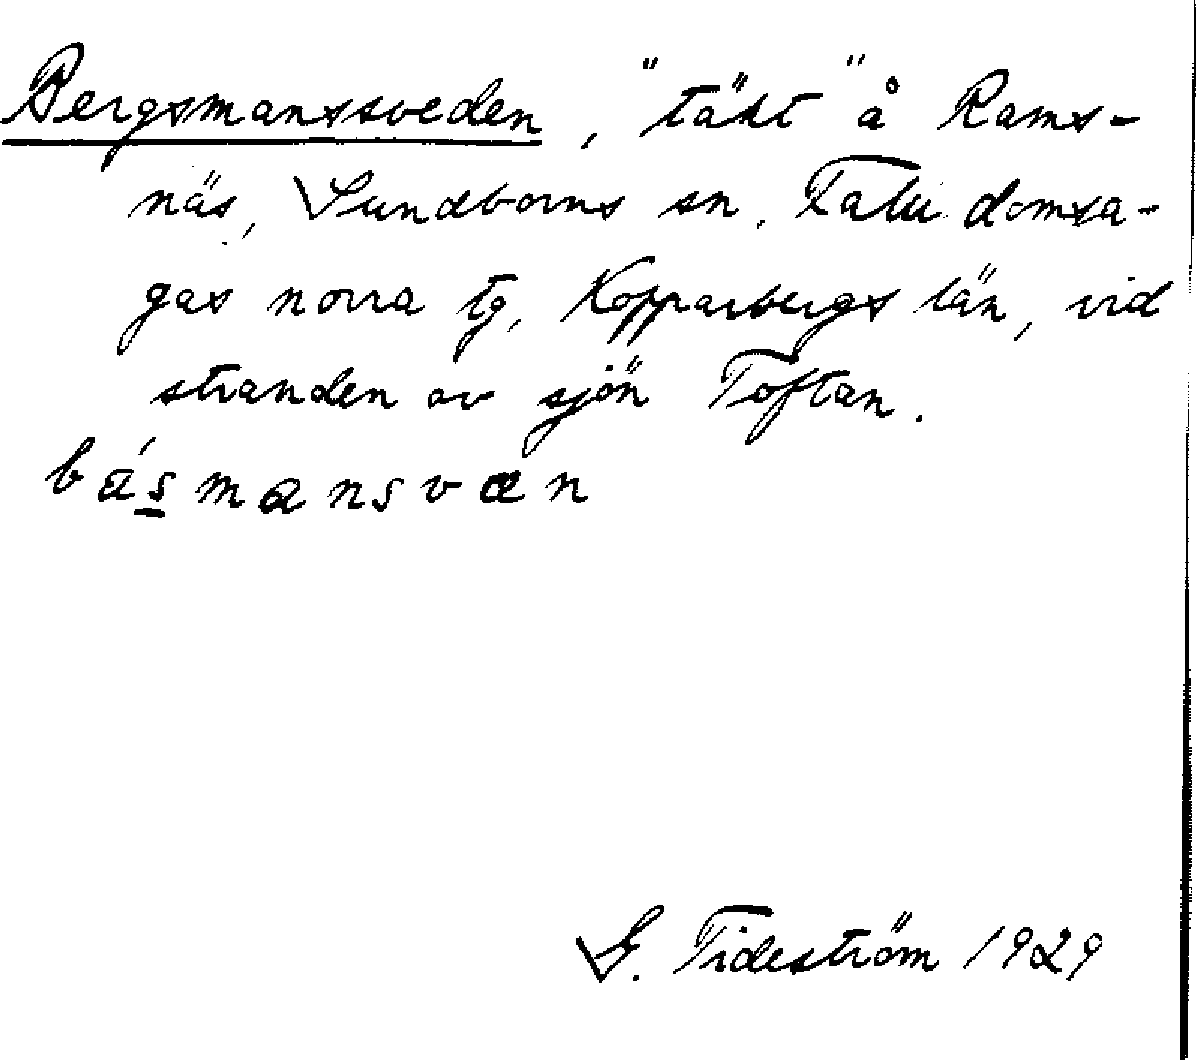 Bergsmanssveden, "täkt" å Rams-
näs, Sundborns sn. Falu domsa-
gas norra tg, Kopparbergs län, vid
stranden av sjön Toftan.
básmansvan
G. Tideström 1929